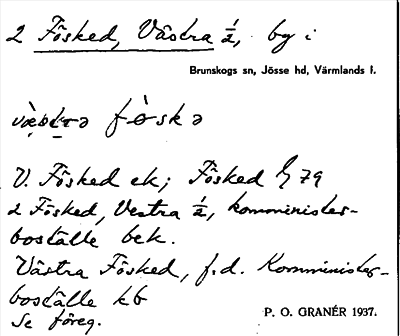 2 Fösked, Västra ½, by i
Brunskogs sn, Jösse hd, Värmlands l.
væ̀stra fö̀skə
V. Fösked ek; Fösked G 79
2 Fösked, Vestra ½, komminister-
boställe bek.
Västra Fösked, f.d. Komminister-
boställe kb
Se föreg.
P. O. GRANÉR 1937.